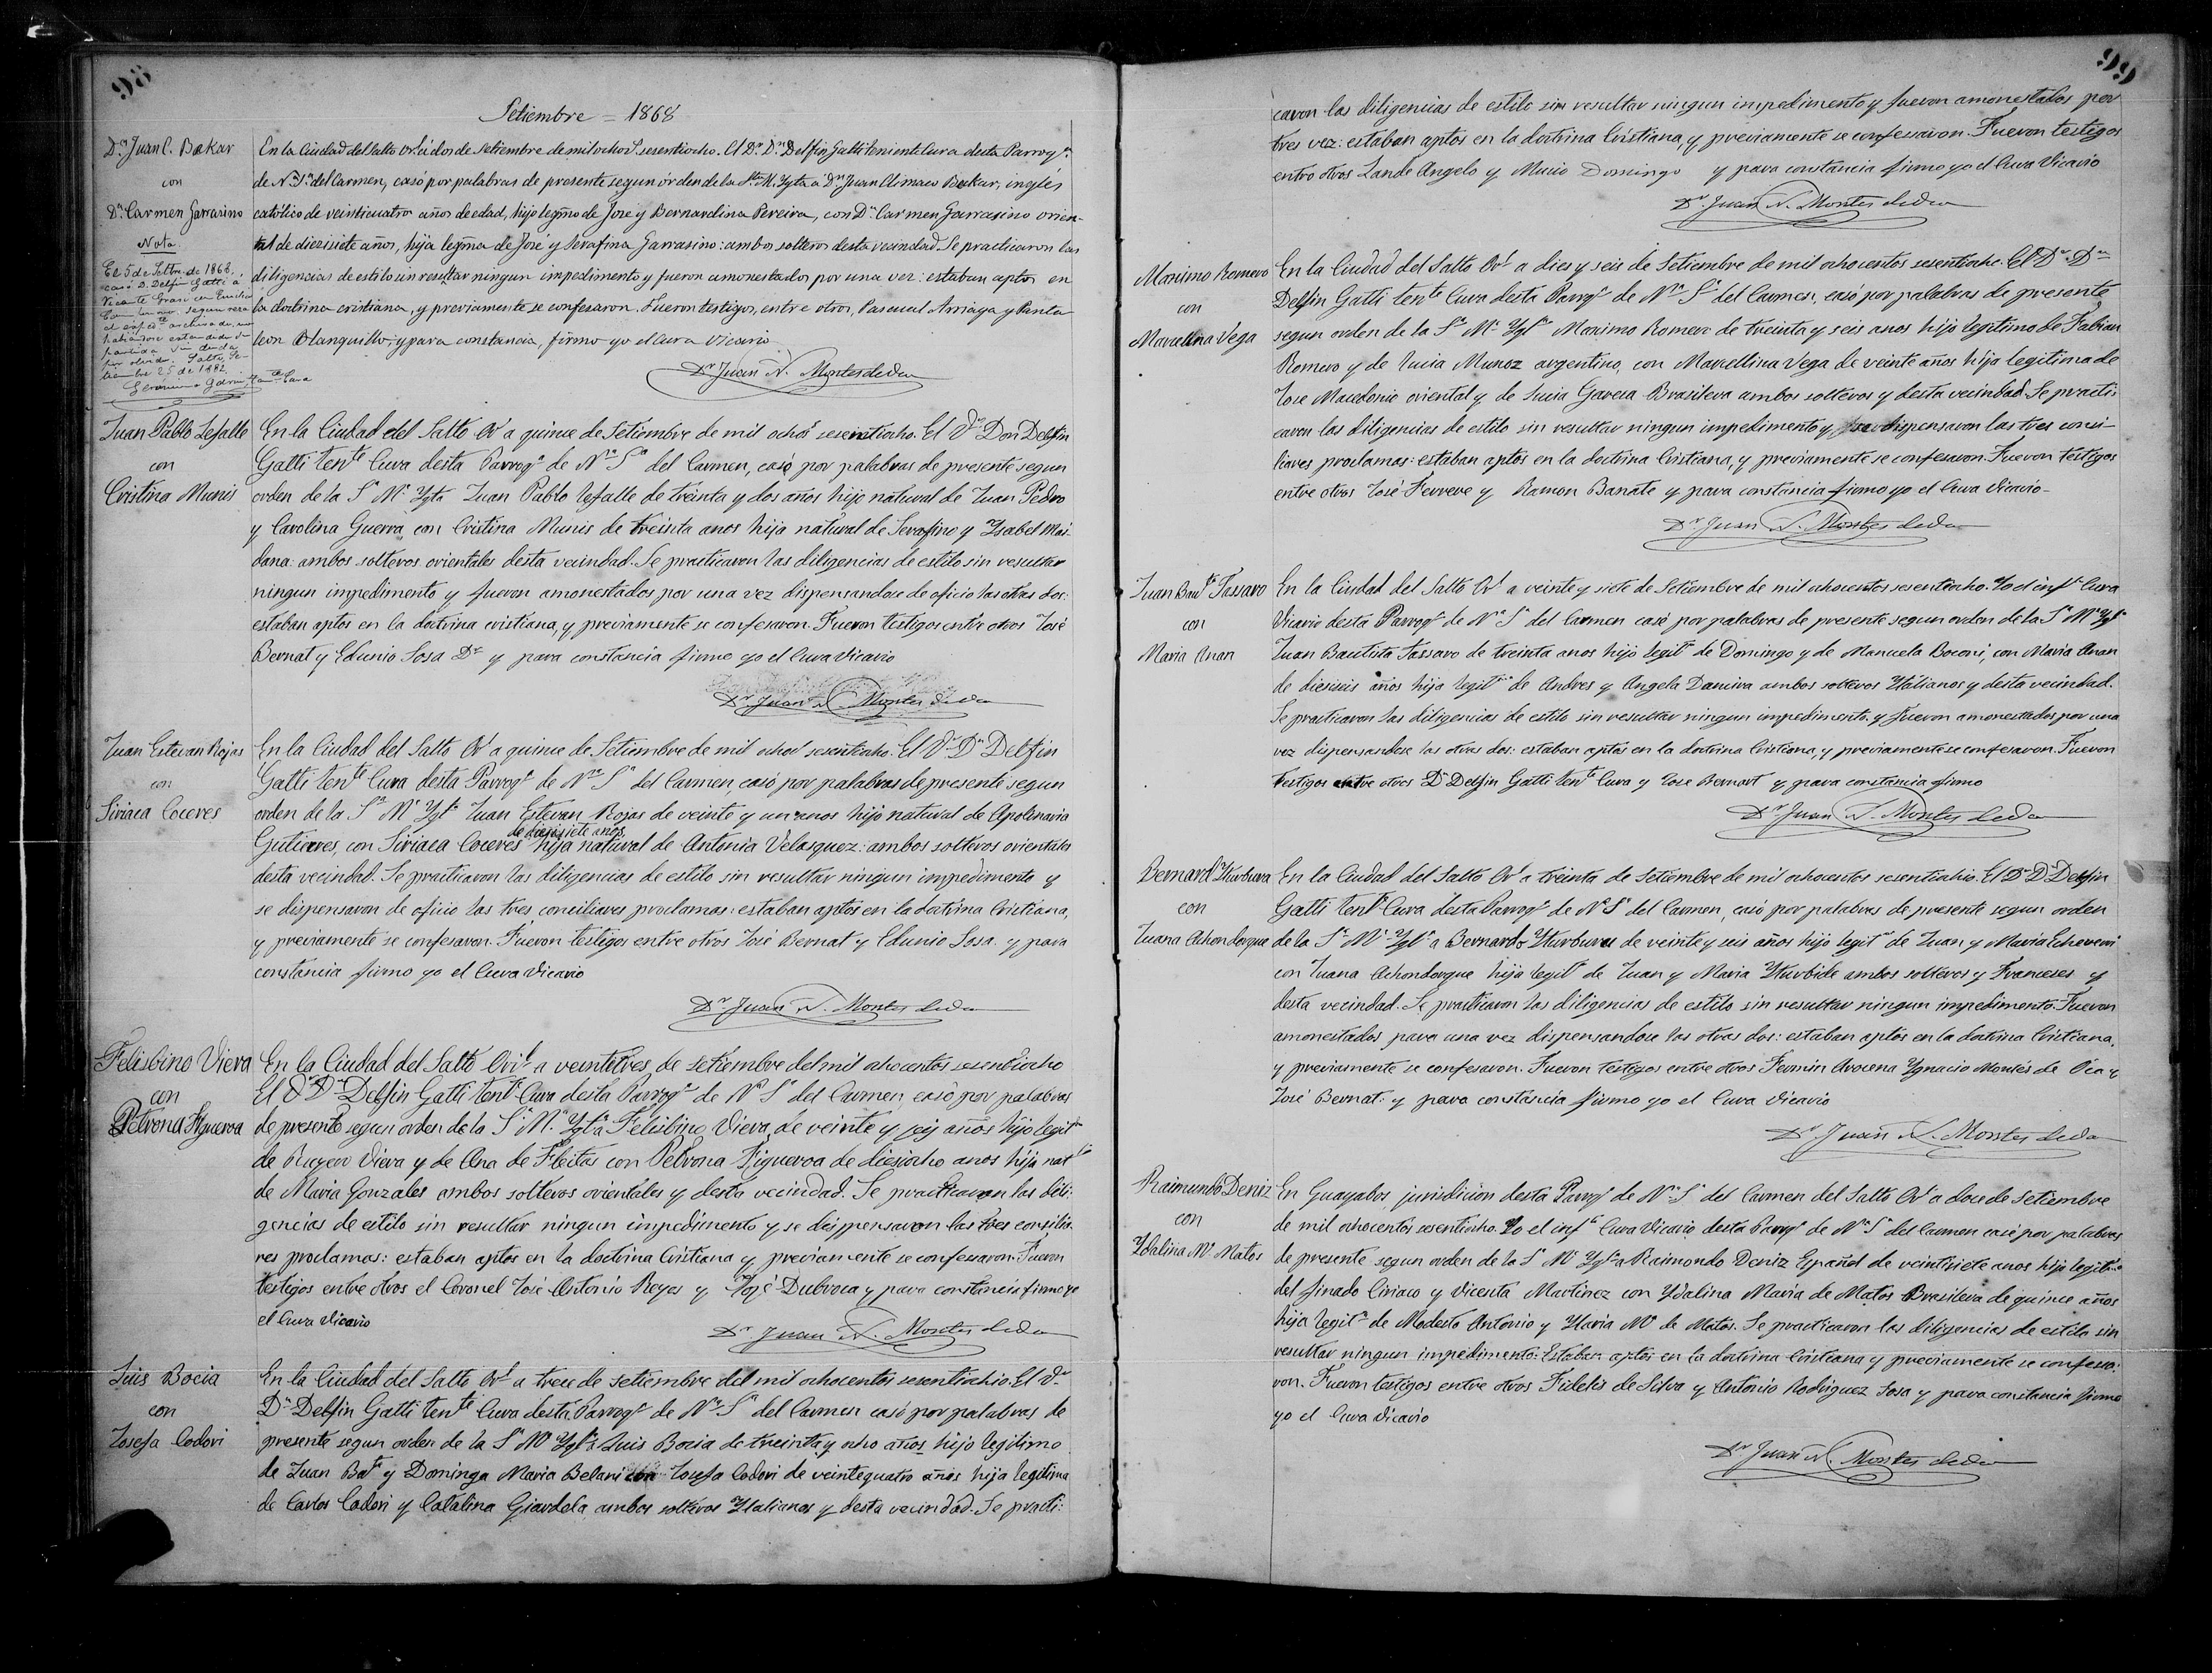 98
Setiembre = 1868
Dn. Juan C. Bakar
con
Da. Carmen Garrasino
Nota
El 5 de Setbre. de 1868,
casó D. Delfin Gatti á
Vicente Grasi con Emilia
segun reza
el esped.te archivado, no
habiendose estendido la
partida sin duda
por olvido. Salto, Se-
tiembre 25 de 1882.
En la Ciudad del Salto Or.l á dos de Setiembre de mil ochos. sesentiocho. El Dr. Dn. Delfin Gatti teniente Cura desta Parroqa.
de Na. Sa. del Carmen, casó por palabras de presente segun órden de la Sta. M. Ygta. á Dn. Juan Climaco Bakar, inglés
católico de veinticuatro años de edad, hijo legmo. de José y Bernardina Pereira, con Da. Carmen Garrasino orien-
tal de diezisiete años, hija legma. de José y Serafina Garrasino: ambos solteros desta vecindad. Se practicaron las
diligencias de estilo sin resultar ningun impedimento y fueron amonestados por una vez: estaban aptos en
la doctrina cristiana, y previamente se confesaron. Fueron testigos, entre otros, Pascual Arriaga y Panta
leon Blanquillo; y para constancia, firmo yo el Cura Vicario
Dr. Juan N. Montes de Oca
Juan Pablo Lefalle
con
Cristina Munis
En la Ciudad del Salto Orl. a quince de Setiembre de mil ochos. sesentiocho. El Dr. Don Delfin
Gatti tente. Cura desta Parroqa. de Na. Sa. del Carmen, casó por palabras de presente segun
orden de la Sa. Me. Ygta. Juan Pablo Lefalle de treinta y dos años hijo natural de Juan Pedro
y Carolina Guerra, con Cristina Munis de treinta anos hija natural de Serafino y Ysabel Mai-
dana: ambos solteros orientales desta vecindad. Se practicaron las diligencias de estilo sin resultar
ningun impedimento y fueron amonestados por una vez dispensandose de oficio las otras dos:
estaban aptos en la doctrina cristiana, y previamente se confesaron. Fueron testigos entre otros José
Bernat y Edunio Sosa Dn. y para constancia firmo yo el Cura Vicario
Dr. Juan N. Montes de Oca
Juan Estevan Rojas
con
Siriaca Coceres
En la Ciudad del Salto Orl. a quince de Setiembre de mil ochos. sesentiocho. El Dr. Dn. Delfin
Gatti tente. Cura desta Parroqa. de Na. Sa. del Carmen, casó por palabras de presente segun
orden de la Sa. Me. Ygta. Juan Estevan Rojas de veinte y un anos hijo natural de Apolinaria
Gutierres, con Siriaca Coceres de diesisiete años hija natural de Antonia Velasquez: ambos solteros orientales
desta vecindad. Se practicaron las diligencias de estilo sin resultar ningun impedimento y
se dispensaron de oficio las tres conciliares proclamas: estaban aptos en la doctrina Cristiana,
y previamente se confesaron. Fueron testigos entre otros José Bernat y Edunio Sosa. y para
constancia firmo yo el Cura Vicario
Dr. Juan N. Montes de Oca
Felisbino Viera
con
Petrona Figueroa
En la Ciudad del Salto Oril. a veintitres de setiembre del mil ochocentos sesentiocho
El Dr. Dn. Delfin Gatti Tente. Cura desta Parroqa. de Na. Sa. del Carmen, casó por palabras
de presente segun orden de la Sa. Me. Ygta. a Felisbino Viera, de veinte y seis años hijo legit
de Rugero Viera y de Ana de Fleitas con Petrona Figueroa de diesiocho anos hija natl.
de Maria Gonzales ambos solteros orientales y desta vecindad. Se practicaron las dili:
gencias de estilo sin resultar ningun impedimento y se dispensaron las tres consilia
res proclamas: estaban aptos en la doctrina Cristiana y previamente se confesaron. Fueron
testigos entre otros el Coronel José Antonio Reyes y José Dubroca y para constancia firmo yo
el Cura Vicario
Dr. Juan N. Montes de Oca
Luis Bocia
con
Josefa Codori
En la Ciudad del Salto Orl. a trece de setiembre del mil ochocentos sesentiochio. El Dr.
Dn. Delfin Gatti tente. Cura desta Parroqa. de Na. Sa. del Carmen casó por palabras de
presente segun orden de la Sa. Me. Ygta. a Luis Bocia de treinta y ocho años hijo legitimo
de Juan Bat. y Dominga Maria Belani con Josefa Codori de veintequatro años hija legitima
de Carlos Codori y Catalina Giardela ambos solteros Ytalianos y desta vecindad. Se practi:
99
caron las diligencias de estilo sin resultar ningun impedimento y fueron amonestados por
tres vez: estaban aptos en la doctrina Cristiana, y previamente se confesaron. Fueron testigos
entre otros Lande Angelo y Mucio Domingo y para constancia firmo yo el Cura Vicario
Dr. Juan N. Montes de Oca
Maximo Romero
con
Marcelina Vega
En la Ciudad del Salto Orl. a dies y seis de Setiembre de mil ochocentos sesentiocho. El Dr. Dn.
Delfin Gatti tente. Cura desta Parroqa. de Na. Sa. del Carmen, casó por palabras de presente
segun orden de la Sa. Me. Ygta. Maximo Romero de treinta y seis anos hijo legitimo de Fabian
Romero y de Lucia Munoz argentino, con Marcellina Vega de veinte años hija legitima de
Jose Macedonio oriental y de Lucia Garcia Brasilera ambos solteros y desta vecindad. Se practi
caron las diligencias de estilo sin resultar ningun impedimento y se dispensaron las tres conci-
liares proclamas: estaban aptos en la doctrina Cristiana, y previamente se confesaron. Fueron testigos
entre otros José Ferrere y Ramon Banate y para constancia firmo yo el Cura Vicario-
Dr. Juan N. Montes de Oca
Juan Bauta. Tassaro
con
Maria Anan
En la Ciudad del Salto Orl. a veinte y siete de Setiembre de mil ochocentos sesentiocho. Yo el inft. Cura
Vicario desta Parroqa. de Na. Sa. del Carmen casé por palabras de presente segun orden de la Sa. Me. Ygta.
Juan Bautista Tassaro de treinta anos hijo legito. de Domingo y de Manuela Boconi, con Maria Anan
de diesiseis años hija legitma. de Andres y Angela Daneiva ambos solteros Ytalianos y desta vecindad.
Se practicaron las diligencias de estilo sin resultar ningun impedimento. y fueron amonestados por una
vez dispensandose las otras dos: estaban aptos en la doctrina Cristiana, y previamente se confesaron. Fueron
testigos entre otros Dn. Delfin Gatti tente. Cura y Jose Bernart y para constancia firmo
Dr. Juan N. Montes de Oca
Bernardo Yturburu
con
Juana Achondorgue
En la Ciudad del Salto Orl. a treinta de Setiembre de mil ochocentos sesentiochio. El Dr. Dn. Delfin
Gatti tente. Cura desta Parroqa. de Na. Sa. del Carmen, casó por palabras de presente segun orden
de la Sa. Me. Ygta. a Bernardo Yturburu de veinte y seis años hijo legito. de Juan y Maria Echeverri
con Juana Achondorgue hija legita. de Juan y Maria Yturbide ambos solteros y Franceses y
desta vecindad. Se practicaron las diligencias de estilo sin resultar ningun impedimento. Fueron
amonestados para una vez dispensandose las otras dos: estaban aptos en la doctrina Cristiana,
y previamente se confesaron. Fueron testigos entre otros Fermin Arocena Ygnacio Montes de Oca y
José Bernat. y para constancia firmo yo el Cura Vicario
Dr. Juan N. Montes de Oca
Raimundo Deniz
con
Ydalina Ma. Matos
En Guayabos, jurisdicion desta Parroqa. de Na. Sa. del Carmen del Salto Orl. a doce de Setiembre
de mil ochocentos sesentiocho. Yo el inft. Cura Vicario desta Parroqa. de Na. Sa. del Carmen casé por palabras
de presente segun orden de la Sa. Me. Ygta. a Raimondo Deniz Español de veintisiete anos hijo legitimo
del finado Ciriaco y Vicenta Martinez con Ydalina Maria de Matos Brasilera de quince años
hija legita. de Modesto Antonio y Maria Ma. de Matos. Se practicaron las diligencias de estilo sin
resultar ningun impedimento: Estaban aptos en la doctrina Cristiana y previamente se confesa-
ron. Fueron testigos entre otros Fidelis de Silva y Antonio Rodriguez Sosa y para constancia firmo
yo el Cura Vicario
Dr. Juan N. Montes de Oca